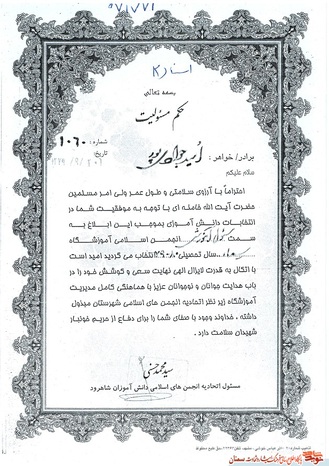 ۵۷/۷۷۱
اسناد K
بسمه تعالی
حکم مسئولیت
شماره: ۱۰۶۰
تاریخ:
برادر/ خواهر: امید جوادی پور
سلام علیکم
احتراماً با آرزوی سلامتی و طول عمر ولی امر مسلمین
حضرت آیت الله خامنه ای با توجه به موفقیت شما در
انتخابات دانش آموزی بموجب این ابلاغ به
سمت انجمن اسلامی آموزشگاه
سال تحصیلی انتخاب می گردید امید است
با اتکال به قدرت لایزال الهی نهایت سعی و کوشش خود را در
باب هدایت جوانان و نوجوانان عزیز با هماهنگی کامل مدیریت
آموزشگاه زیر نظر اتحادیه انجمن های اسلامی شهرستان مبذول
داشته، خداوند وجود با صفای شما را برای دفاع از حریم خونبار
شهیدان سلامت دارد.
سید محمد حسنی
مسئول اتحادیه انجمن های اسلامی دانش آموزان شاهرود